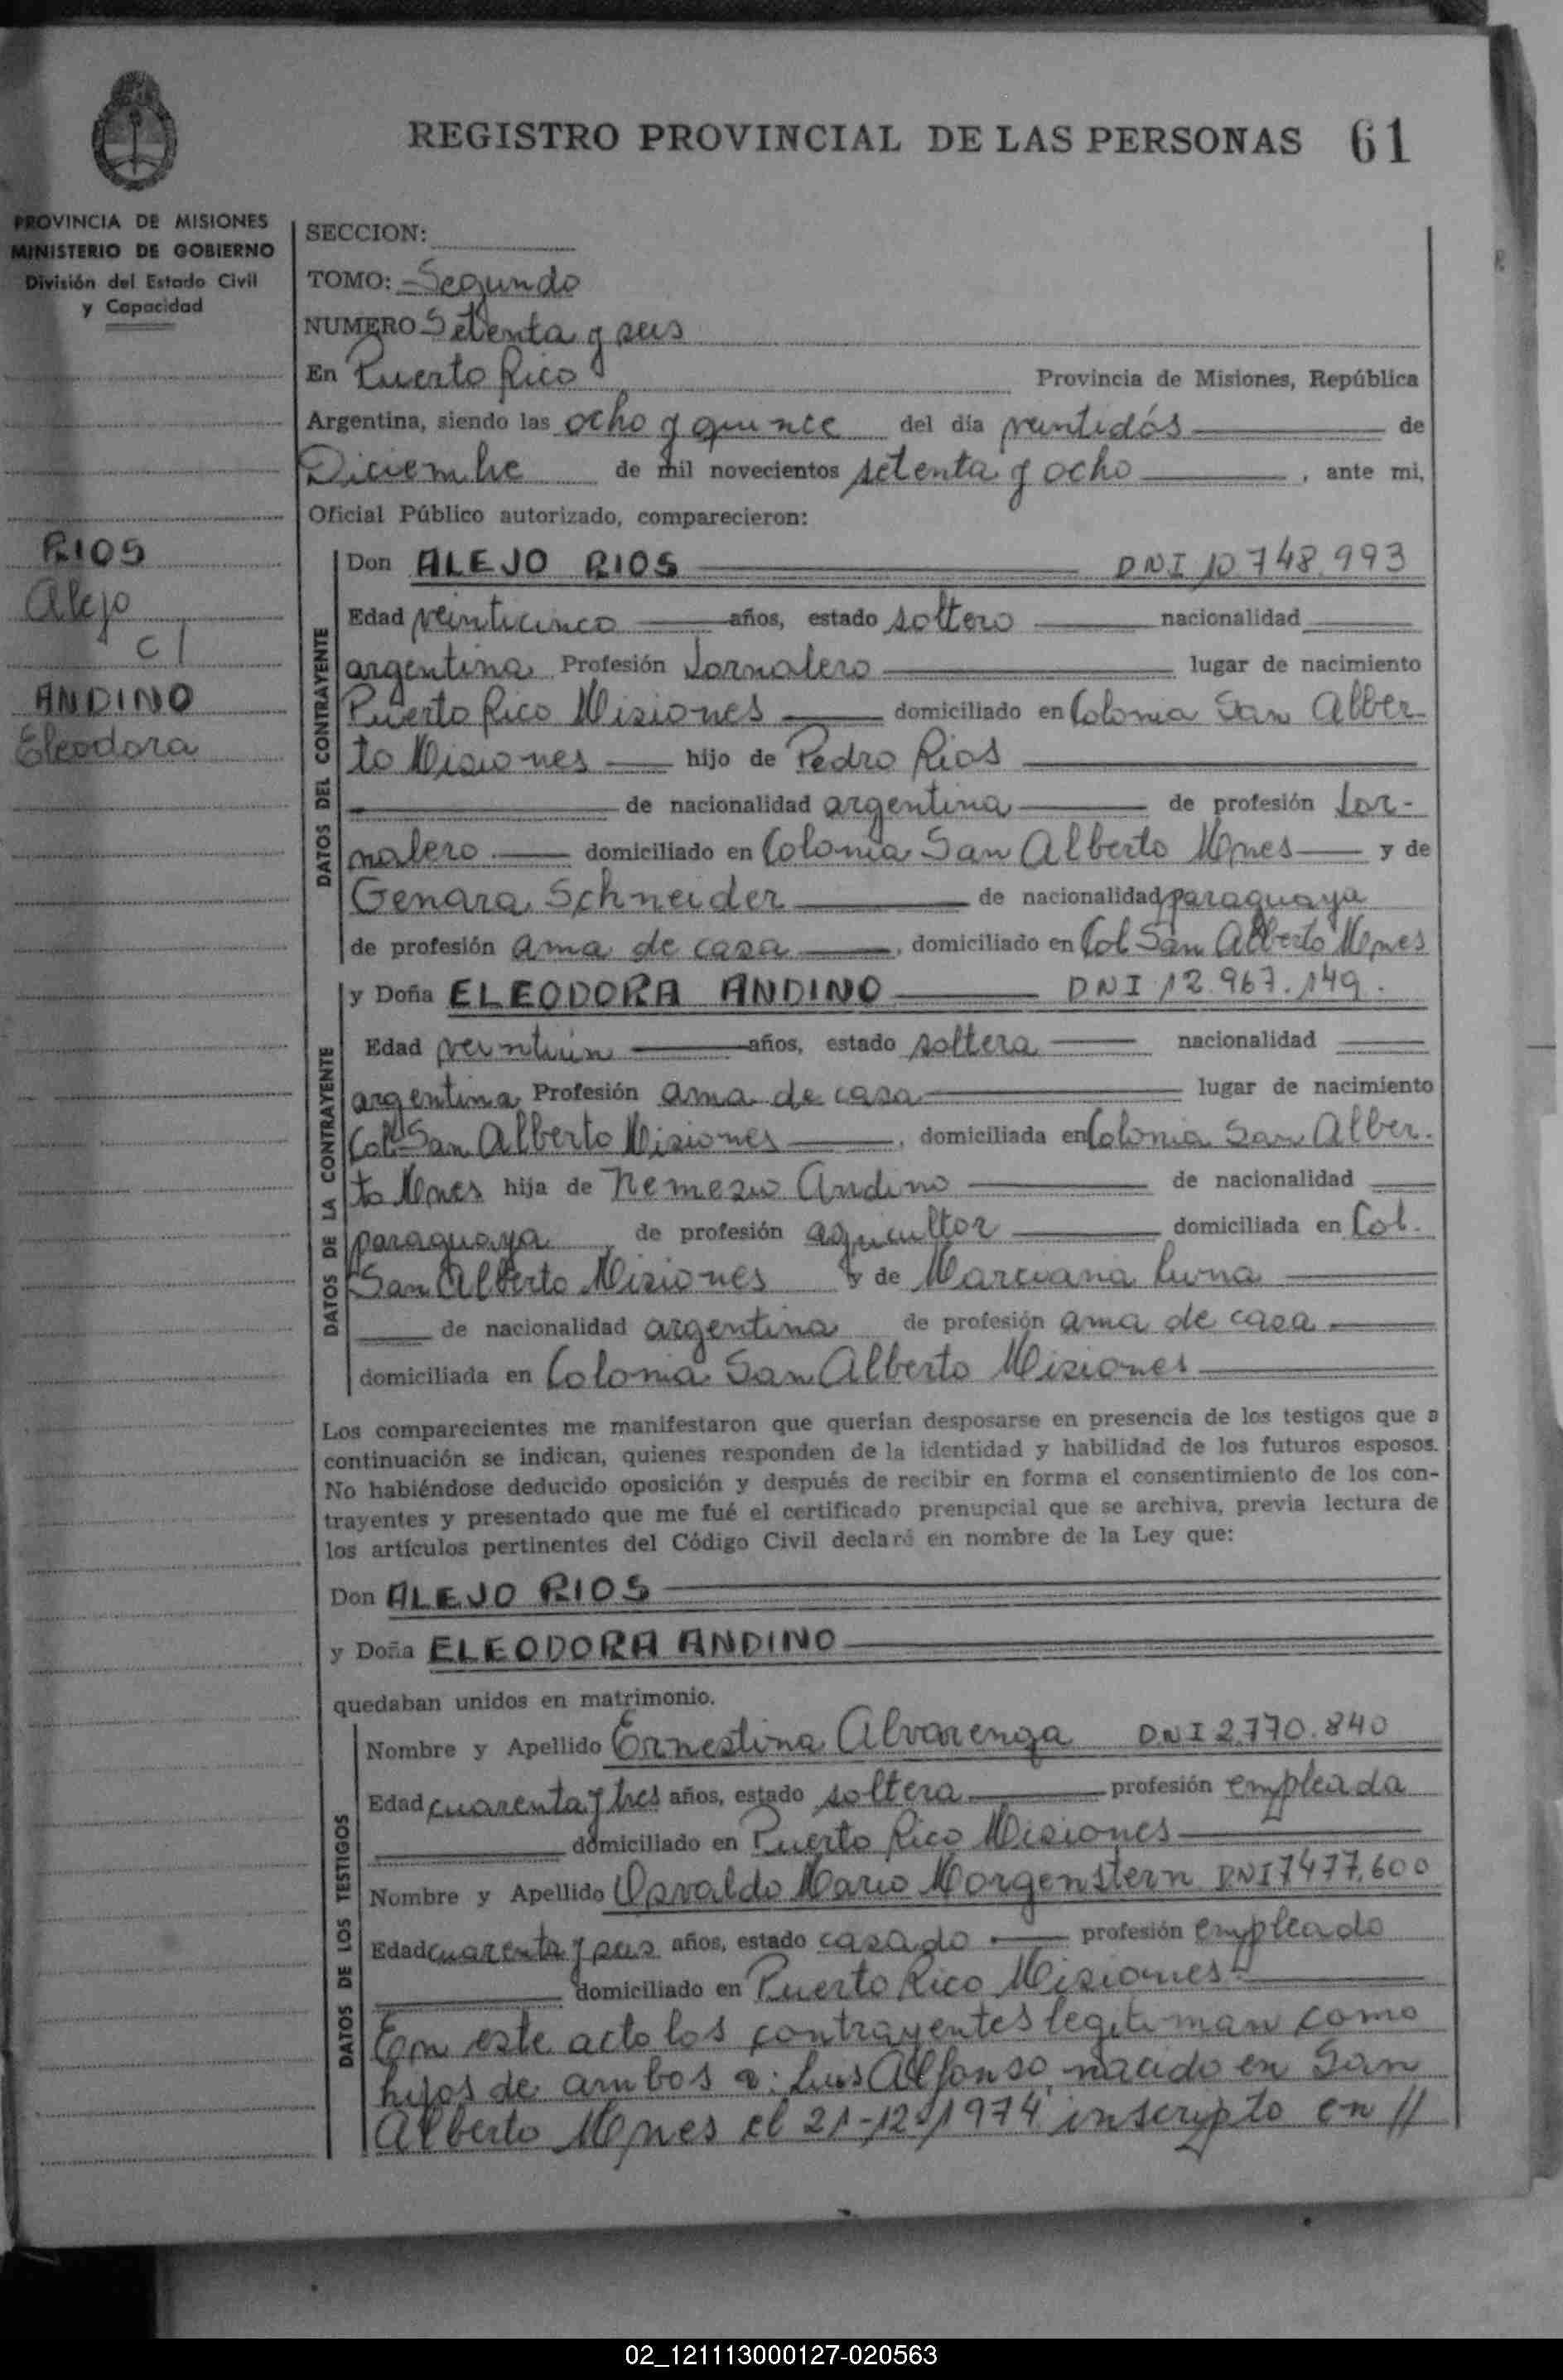 REGISTRO PROVINCIAL DE LAS PERSONAS 61
PROVINCIA DE MISIONES
MINISTERIO DE GOBIERNO
División del Estado Civil
y Capacidad
RIOS
Alejo
c/
ANDINO
Eleodora
SECCION:
TOMO: Segundo
NUMERO Setenta y seis
En Puerto Rico Provincia de Misiones, República
Argentina, siendo las ocho y quince del día veintidós de
Diciembre de mil novecientos setenta y ocho, ante mi,
Oficial Público autorizado, comparecieron:
DATOS DEL CONTRAYENTE
Don ALEJO RIOS DNI 10.748.993
Edad veinticinco años, estado soltero nacionalidad
argentina Profesión Jornalero lugar de nacimiento
Puerto Rico Misiones domiciliado en Colonia San Alber-
to Misiones hijo de Pedro Rios
de nacionalidad argentina de profesión Jor-
nalero domiciliado en Colonia San Alberto Mnes y de
Genara Schneider de nacionalidad paraguaya
de profesión ama de casa, domiciliado en Col San Alberto Mnes
DATOS DE LA CONTRAYENTE
y Doña ELEODORA ANDINO DNI 12.967.149.
Edad veintiún años, estado soltera nacionalidad
argentina Profesión ama de casa lugar de nacimiento
Col. San Alberto Misiones, domiciliada en Colonia San Alber-
to Mnes hija de Nemezio Andino de nacionalidad
paraguaya, de profesión agricultor domiciliada en Col.
San Alberto Misiones y de Marciana Luna
de nacionalidad argentina de profesión ama de casa
domiciliada en Colonia San Alberto Misiones
Los comparecientes me manifestaron que querían desposarse en presencia de los testigos que a
continuación se indican, quienes responden de la identidad y habilidad de los futuros esposos.
No habiéndose deducido oposición y después de recibir en forma el consentimiento de los con-
trayentes y presentado que me fué el certificado prenupcial que se archiva, previa lectura de
los artículos pertinentes del Código Civil declaré en nombre de la Ley que:
Don ALEJO RIOS
y Doña ELEODORA ANDINO
quedaban unidos en matrimonio.
DATOS DE LOS TESTIGOS
Nombre y Apellido Ernestina Alvarenga DNI 2.770.840
Edad cuarenta y tres años, estado soltera profesión empleada
domiciliado en Puerto Rico Misiones
Nombre y Apellido Osvaldo Mario Morgenstern DNI 7477.600
Edad cuarenta y seis años, estado casado profesión empleado
domiciliado en Puerto Rico Misiones.
En este acto los contrayentes legitiman como
hijos de ambos a: Luis Alfonso, nacido en San
Alberto Mnes el 21-12-1974 inscripto en //
02_121113000127-020563